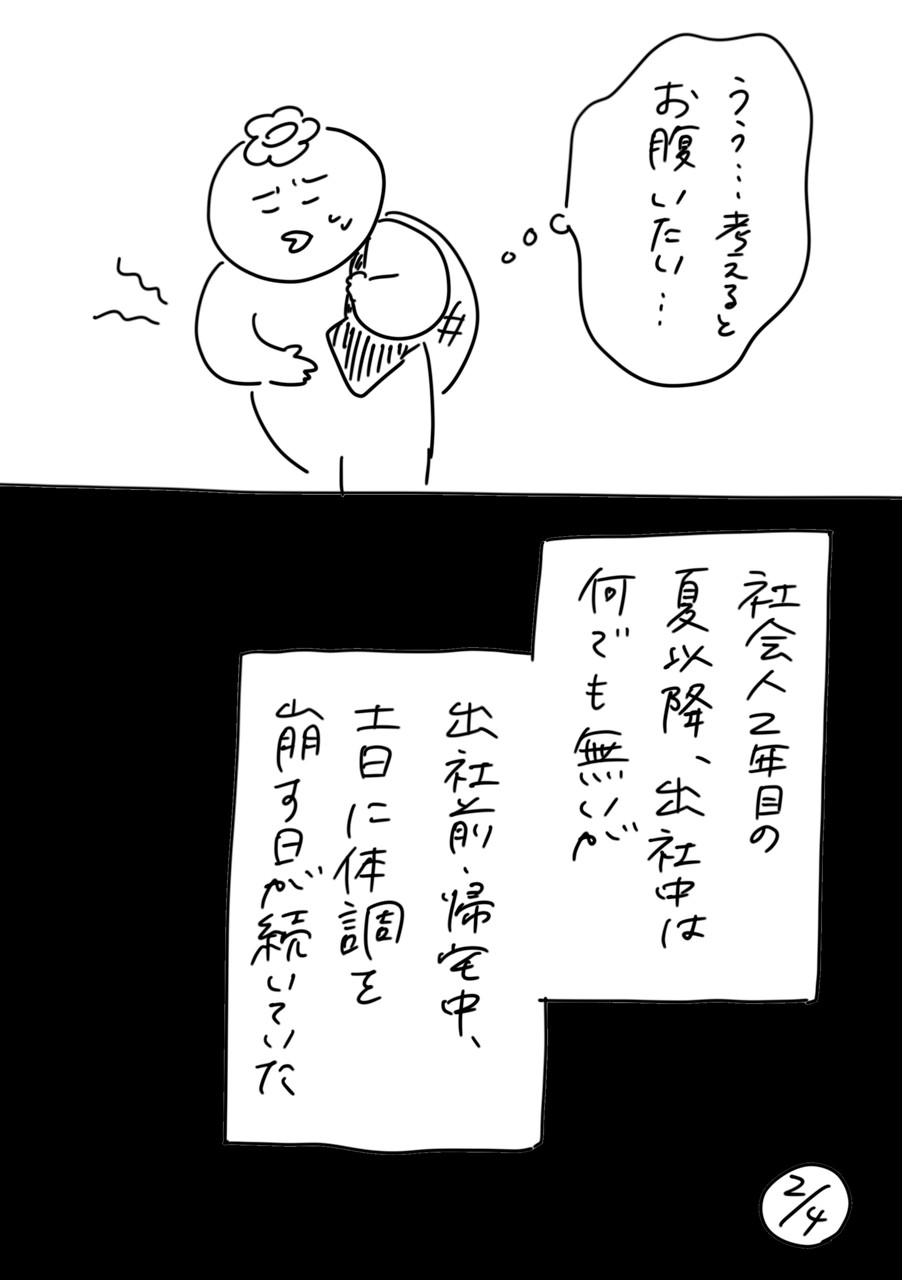 うぅ…考えると
お腹いたい…
社会人2年目の
夏以降、出社中は
何でも無いが
出社前、帰宅中、
土日に体調を
崩す日が続いていた
2/4